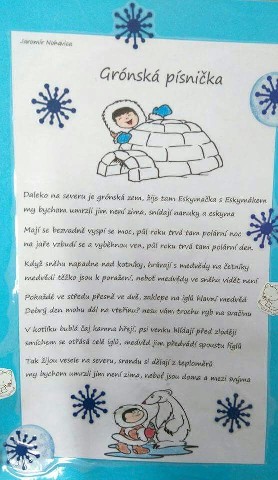 Jaromír Nohavica
Grónská písnička
Daleko na severu je grónská zem, žije tam Eskymačka s Eskymákem
my bychom umrzli jim není zima, snídají nanuky a eskyma
Mají se bezvadně vyspí se moc, půl roku trvá tam polární noc
na jaře vzbudí se a vyběhnou ven, půl roku trvá tam polární den
Když sněhu napadne nad kotníky, hrávají s medvědy na četníky
medvědi těžko jsou k poražení, neboť medvědy ve sněhu vidět není
Pokaždé ve středu přesně ve dvě, zaklepe na íglů hlavní medvěd
Dobrý den mohu dál na vteřinu? nesu vám trochu ryb na svačinu
V kotlíku bublá čaj kamna hřejí, psi venku hlídají před zloději
smíchem se otřásá celé íglů, medvěd jim předvádí spoustu fíglů
Tak žijou vesele na severu, srandu si dělají z teploměrů
my bychom umrzli jim není zima, neboť jsou doma a mezi svýma